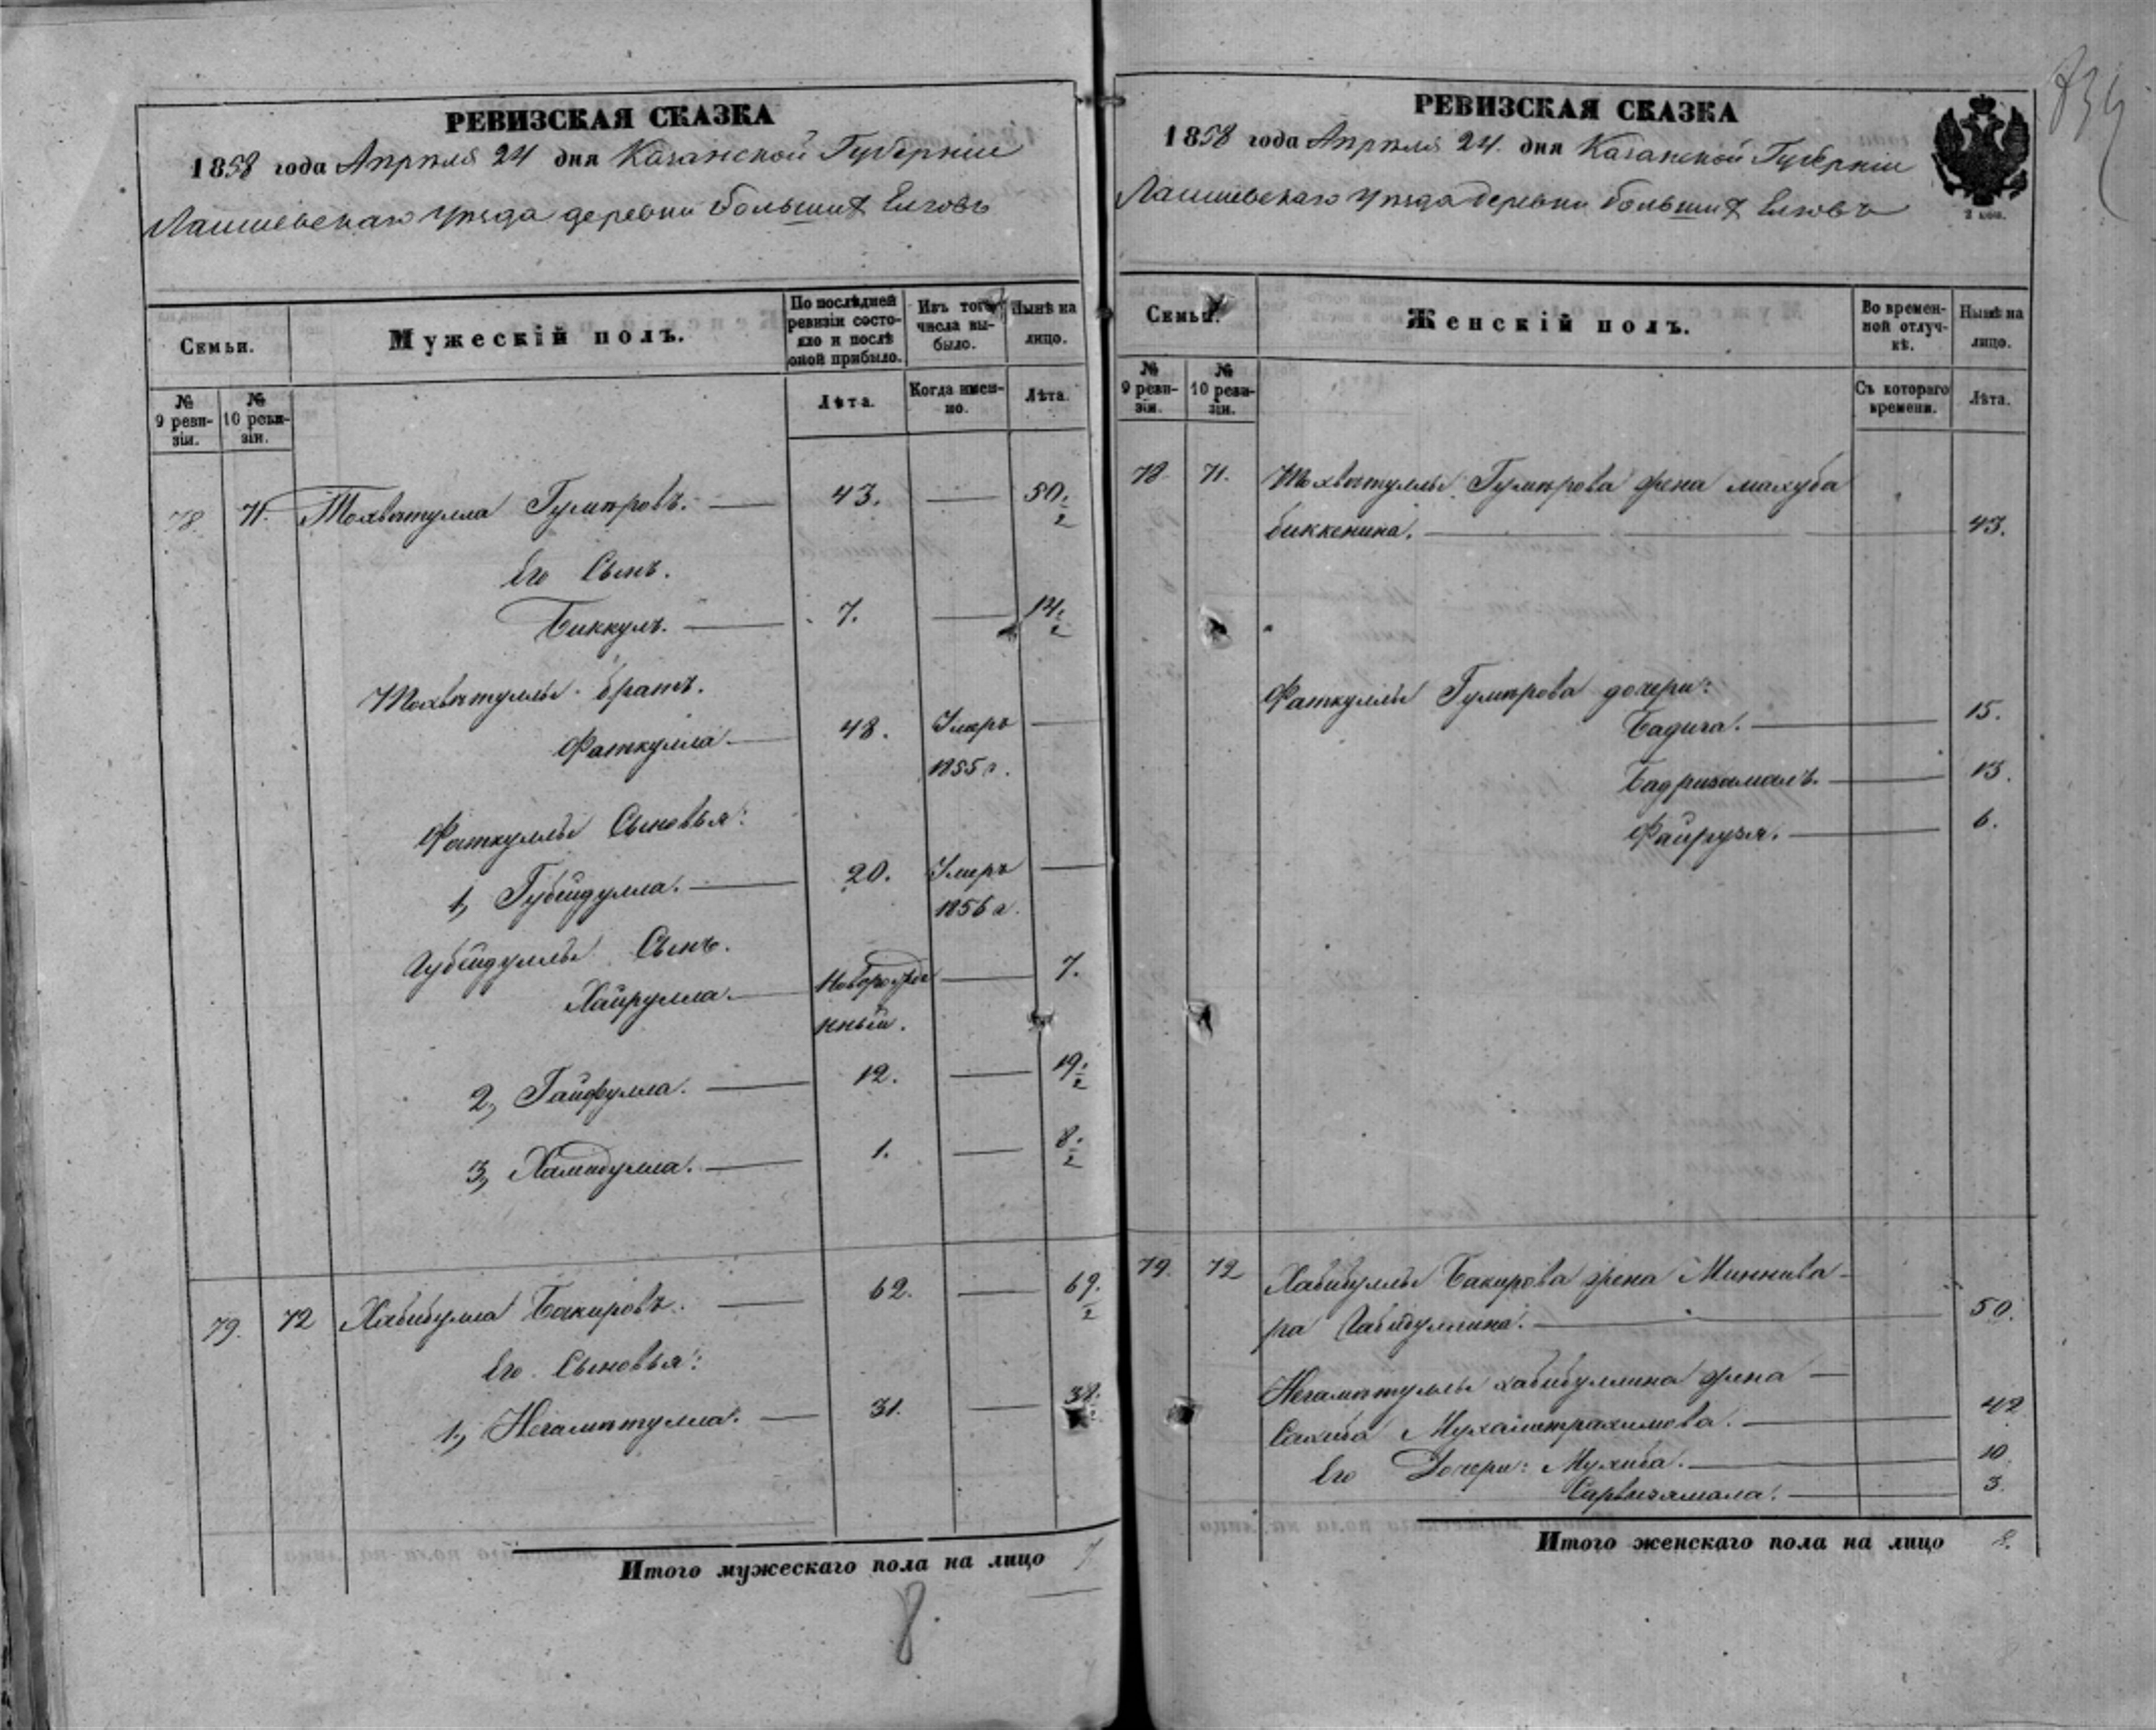 РЕВИЗСКАЯ СКАЗКА
1858 года Апрѣля 24 дня Казанской Губерніи
Лаишевскаго уѣзда деревни большихъ Елговъ
Семьи.
Мужескій полъ.
По послѣдней ревизіи состояло и послѣ оной прибыло.
Изъ того числа выбыло.
Нынѣ на лицо.
№ 9 ревизіи.
№ 10 ревизіи.
Лѣта.
Когда именно.
Лѣта.
78. 71. Мохватулла Гумѣровъ. — 43. — 50.
2
Его Сынъ.
Биккулъ. — 7. — 14.
2
Мохватуллы братъ.
Фаткулла — 48. Умеръ —
1855 г.
Фаткуллы Сыновья:
1, Губейдулла. — 20. Умеръ —
1856 г.
Губейдуллы Сынъ.
Хайрулла. — Новорожде — 7.
нный.
2, Гайфулла. — 12. — 19.
2
3, Хамидулла. — 1. — 8.
2
79. 72 Хабибулла Бакировъ. — 62. — 69.
2
Его Сыновья:
1, Негаматулла. — 31. — 38.
Итого мужескаго пола на лицо 7
8.
РЕВИЗСКАЯ СКАЗКА
1858 года Апрѣля 24. дня Казанской Губерніи
Лаишевскаго уѣзда деревни большихъ Елговъ
2 коп.
Семьи.
Женскій полъ.
Во временной отлучкѣ.
Нынѣ на лицо.
№ 9 ревизіи.
№ 10 ревизіи.
Съ котораго времени.
Лѣта.
78. 71. Мохватуллы Гумѣрова жена махуба
биккенина. — 43.
Фаткуллы Гумѣрова дочери:
Бадига. — 15.
Бадризамалъ. — 13.
Файрузя. — 6.
79. 72 Хабибуллы Бакирова жена Миннива
ра Габидуллина. — 50.
Негаматуллы хабибуллина жена —
Сахиба Мухаметрахимова. — 42
Его Дочери: Мухиба. — 10.
Сарвизямала. — 3.
Итого женскаго пола на лицо 8.